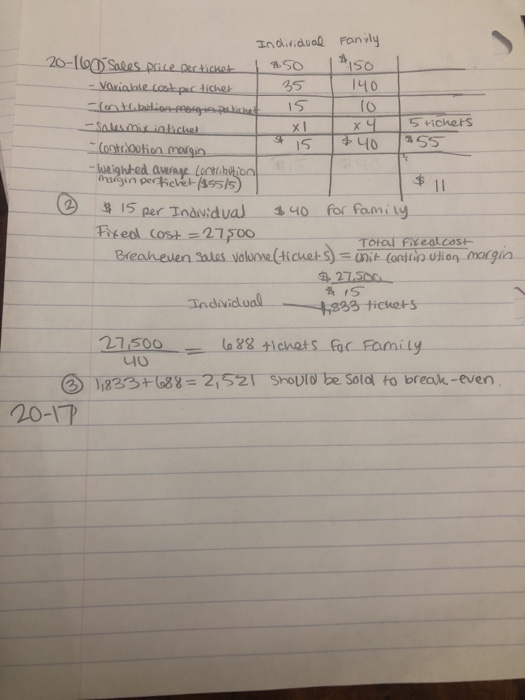 Individual Family
20-16 ① Sales price per ticket $50 $150
- Variable cost per ticket 35 140
- Contribution margin per ticket 15 10
- Sales mix in ticket x1 x4 5 tickets
- Contribution margin $ 15 $40 $55
- Weighted average contribution
margin per ticket ($55/5) $ 11
② $ 15 per Individual $40 for family
Fixed cost = 27,500
Breakeven sales volume (tickets) = Total Fixed cost
Unit contribution margin
$ 27,500
$ 15
Individual 1,833 tickets
27,500 = 688 tickets for Family
40
③ 1,833+688= 2,521 should be sold to break-even.
20-17